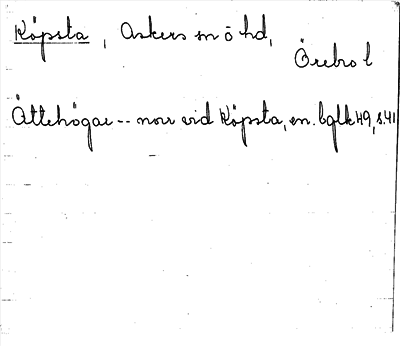 Köpsta, Askers sn ö hd,
Örebro l
Ättehögar -- norr vid Köpsta, en. bglk 49, s. 41